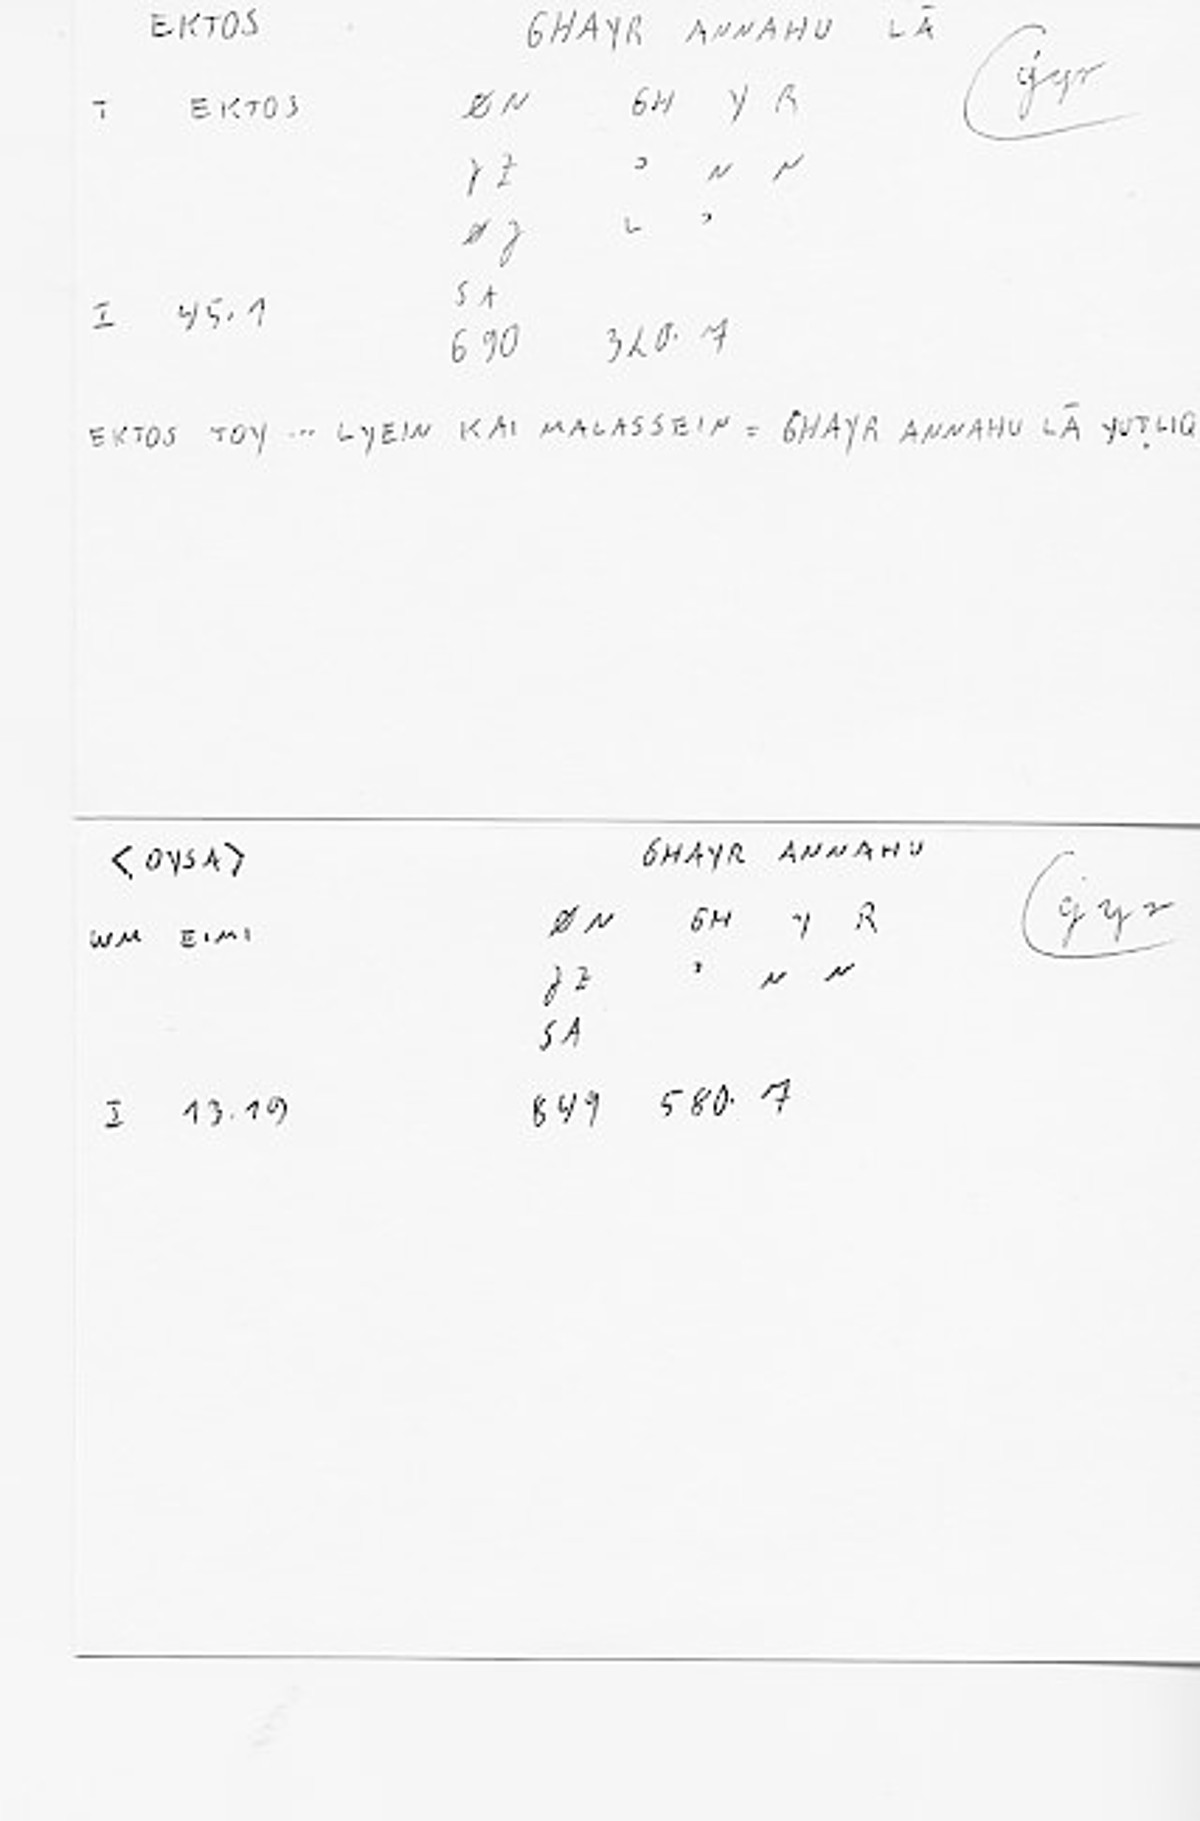 EKTOS GHAYR ANNAHU LĀ
ġyr
I EKTOS ØN GH Y R
ʒZ ʾ N N
Øʒ L ʾ
SA
I 45.1
690 320.7
EKTOS TOY ... LYEIN KAI MALASSEIN = GHAYR ANNAHU LĀ YUṬLIQ
<OYSA> GHAYR ANNAHU
ġyr
WM EIMI ØN GH Y R
ʒZ ʾ N N
SA
I 13.19 849 580.7